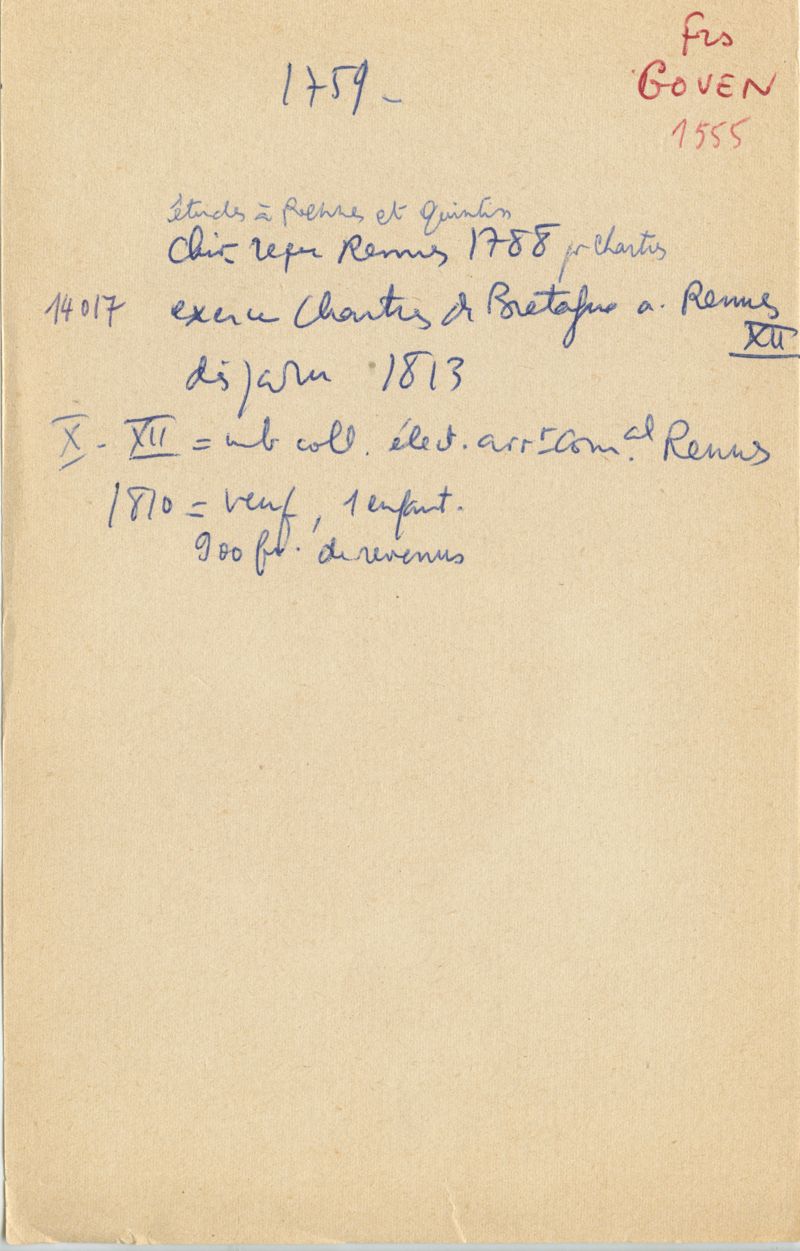 Frs
GOVEN
1555
1759 -
études à Rennes et Quintin
Chir. reçu Rennes 1788 pr Chartres
14017 exerce Chartres de Bretagne a. Rennes
XII
disparu 1813
X - XII = mb coll. élect. arrt com.al Rennes
1810 = veuf, 1 enfant.
900 fr. de revenus